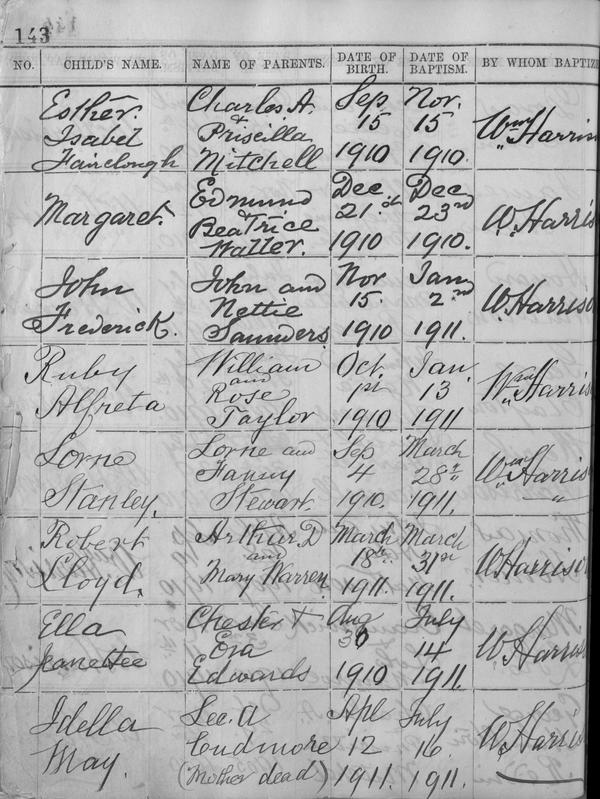 143
NO. CHILD'S NAME. NAME OF PARENTS. DATE OF BIRTH. DATE OF BAPTISM. BY WHOM BAPTIZE
Esther. Charles A. Sep Nov.
Isabel & Priscilla 15 15 Wm Harris
Fairclough Mitchell 1910 1910.
Edmund Dec Dec
Margaret. & Beatrice 21.st 23rd W. Harris
Walter. 1910 1910.
John John and Nov Jan
Frederick. Nettie 15. 2nd W. Harriso
Saunders 1910 1911.
Ruby William Oct. Jan.
and Rose 1st 13 Wm Harris
Alfreta Taylor 1910 1911
Lorne Lorne and Sep March
Fanny 4 28th Wm Harris
Stanley. Stewart. 1910. 1911.
Robert Arthur D March March
and 18th 31st W Harrison
Lloyd. Mary Warren 1911. 1911.
Ella Chester & Aug July
Jeanettee Eva 30 14 W. Harris
Edwards 1910 1911.
Idella Lee. A Apl July
May. Cudmore 12 16 W. Harris
(Mother dead) 1911. 1911.